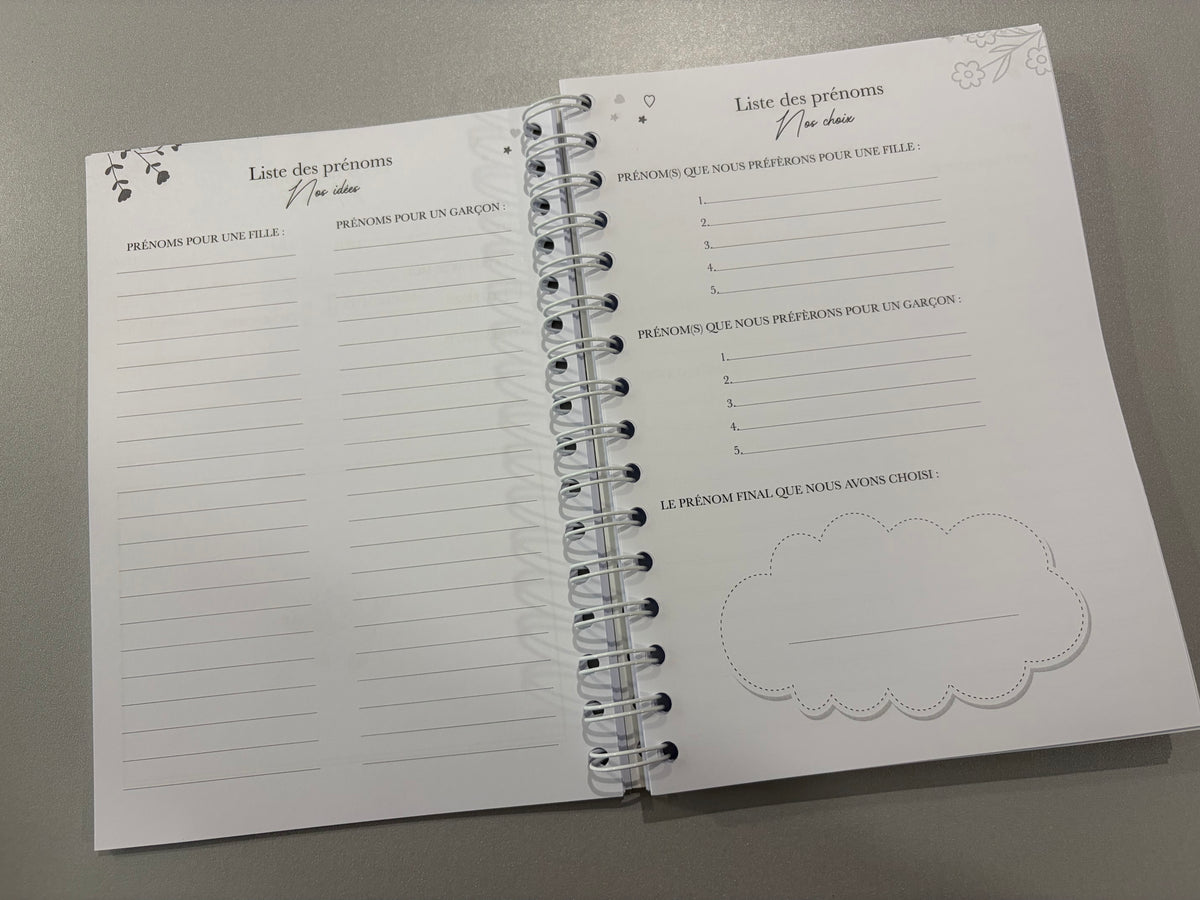 Liste des prénoms
Nos idées
PRÉNOMS POUR UNE FILLE :
PRÉNOMS POUR UN GARÇON :
Liste des prénoms
Nos choix
PRÉNOM(S) QUE NOUS PRÉFÈRONS POUR UNE FILLE :
1.
2.
3.
4.
5.
PRÉNOM(S) QUE NOUS PRÉFÈRONS POUR UN GARÇON :
1.
2.
3.
4.
5.
LE PRÉNOM FINAL QUE NOUS AVONS CHOISI :